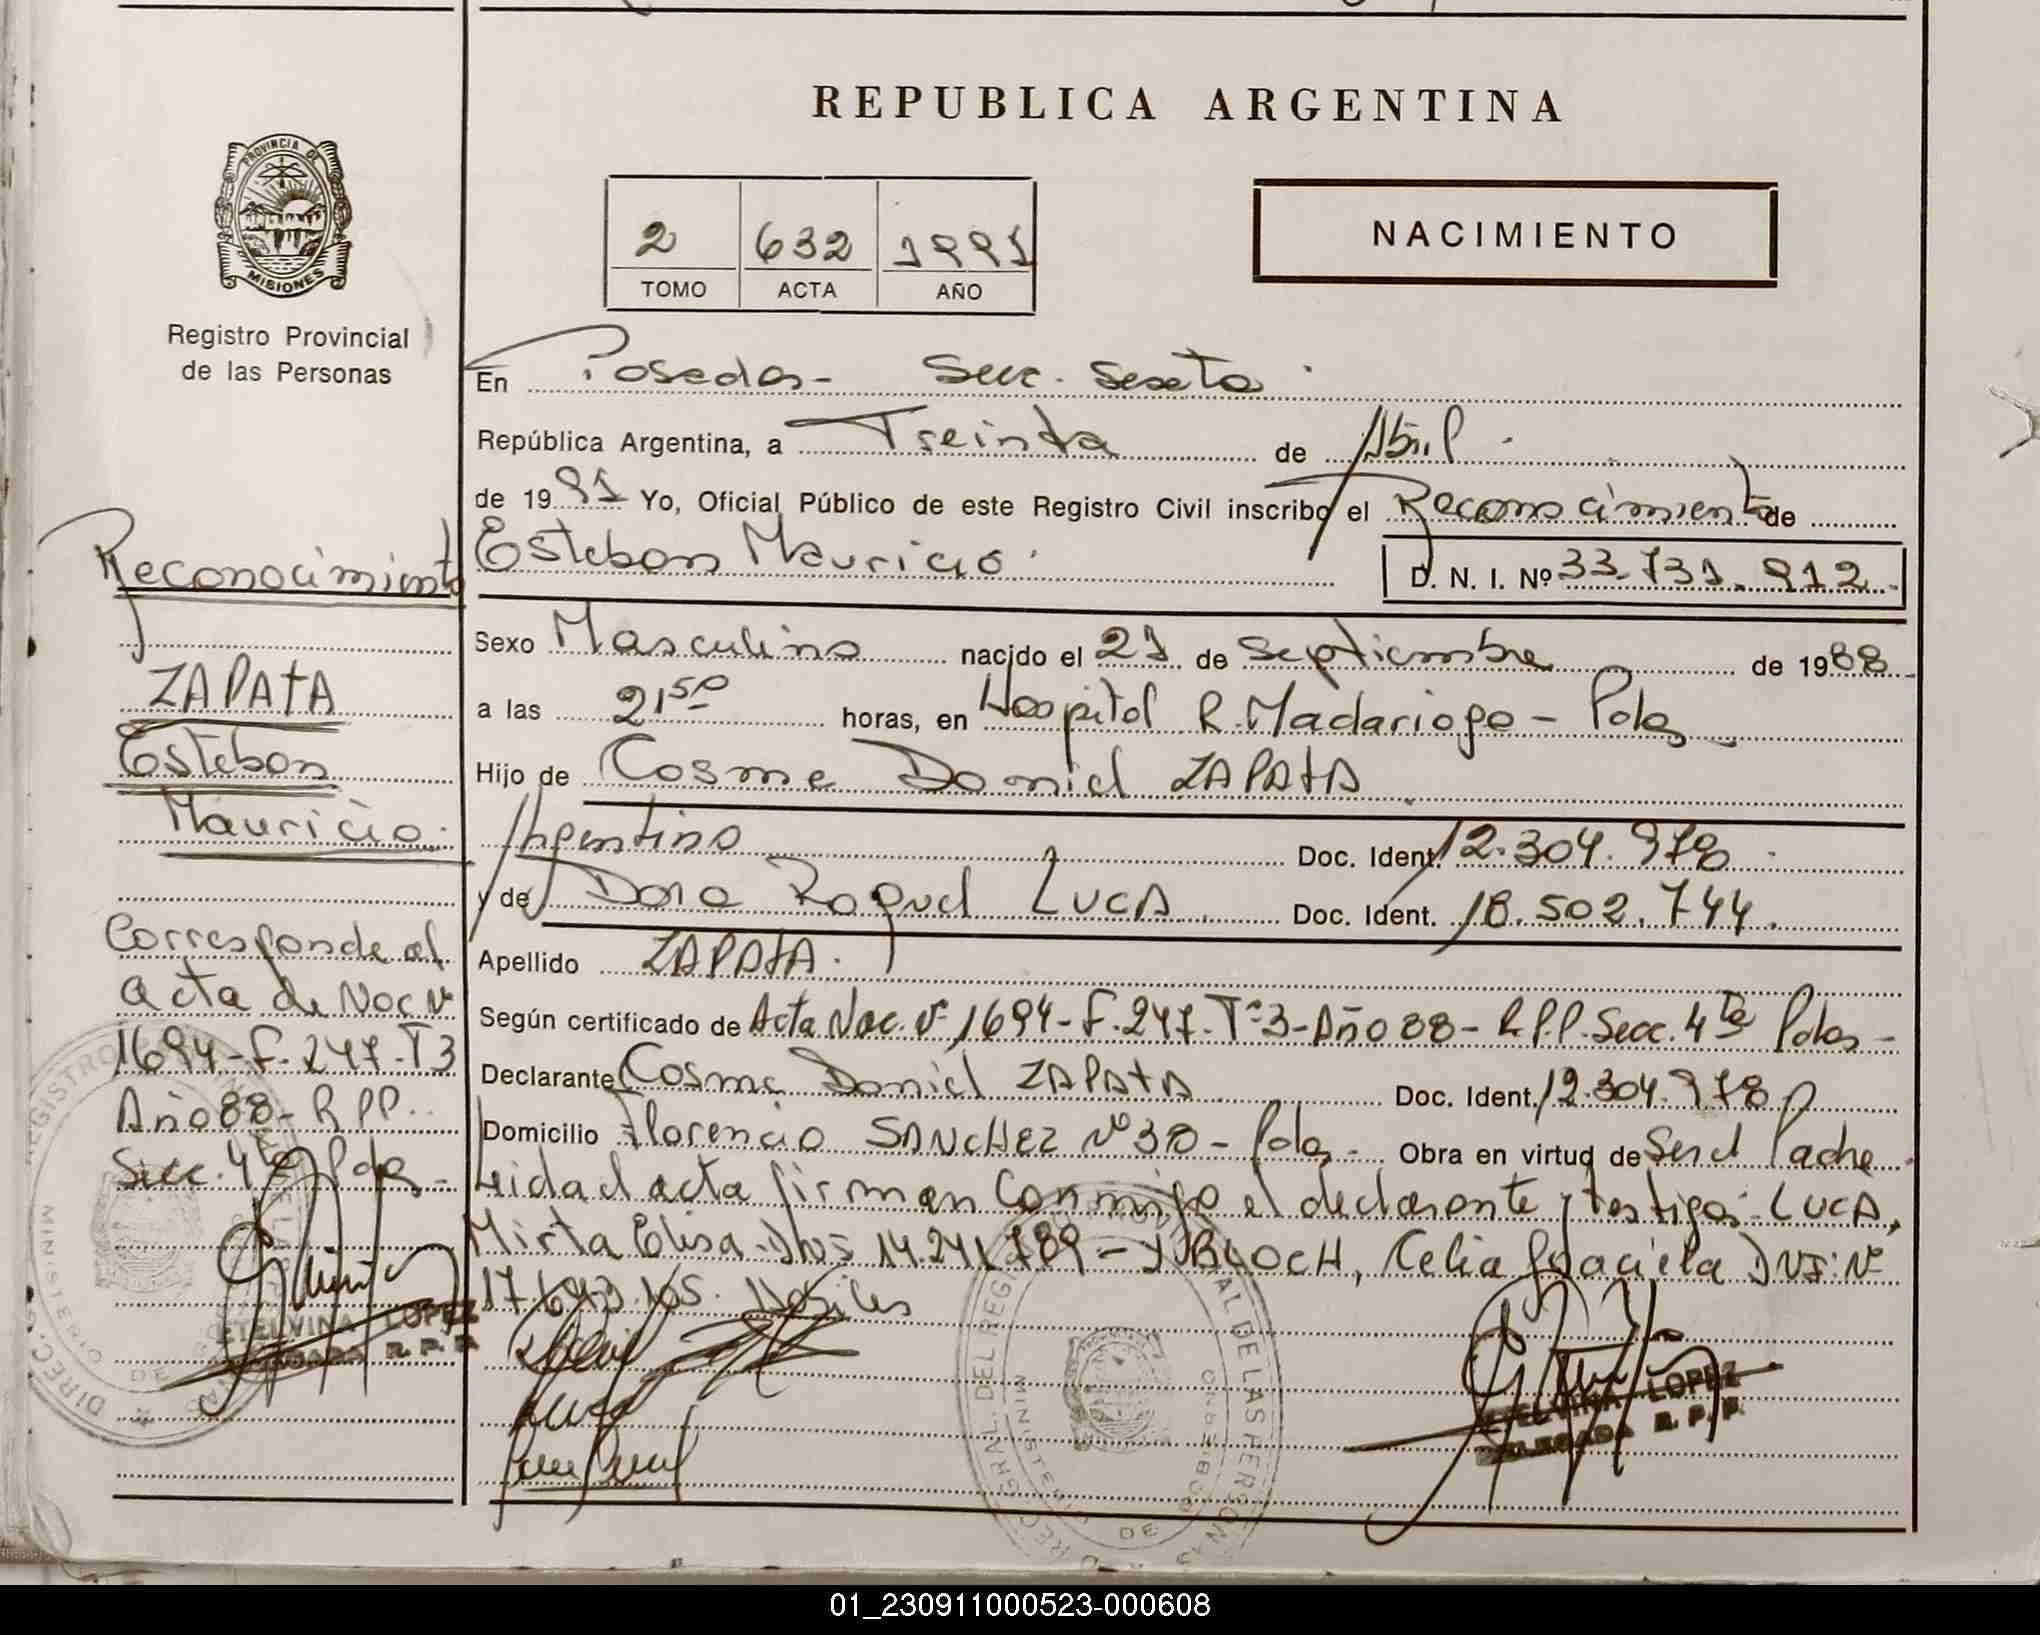 REPUBLICA ARGENTINA
PROVINCIA DE
MISIONES
Registro Provincial
de las Personas
2 632 1991
TOMO ACTA AÑO
NACIMIENTO
En Posadas - Secc. Sexta
República Argentina, a Treinta de Abril
de 1991 Yo, Oficial Público de este Registro Civil inscribo el Reconocimiento de
Esteban Mauricio D. N. I. Nº 33.731.912
Sexo Masculino nacido el 21 de Septiembre de 1988
a las 21 50 horas, en Hospital R. Madariaga - Pdas
Hijo de Cosme Daniel ZAPATA
Argentino Doc. Ident. 12.304.978
y de Dora Raquel LUCA Doc. Ident. 18.502.744.
Apellido ZAPATA.
Según certificado de Acta Nac. Nº 1694 - F. 247 - Tº 3 - Año 88 - R.P.P. Secc. 4ta Pdas -
Declarante Cosme Daniel ZAPATA Doc. Ident. 12.304.978
Domicilio Florencio SANCHEZ Nº 30 - Pdas - Obra en virtud de Ser el Padre
Leida el acta firman conmigo el declarante y testigos: LUCA,
Mirta Elisa - DNI 14.241.789 - y BLOCH, Celia Graciela DNI Nº
17. Hábiles
ETELVINA LOPEZ
DELEGADA R. P. P.
Reconocimiento
ZAPATA
Esteban
Mauricio.
Corresponde al
acta de Nac Nº
1694 - F. 247 - T 3
Año 88 - R P P.
Secc. 4ta Pdas -
ETELVINA LOPEZ
DELEGADA R. P. P.
01_230911000523-000608